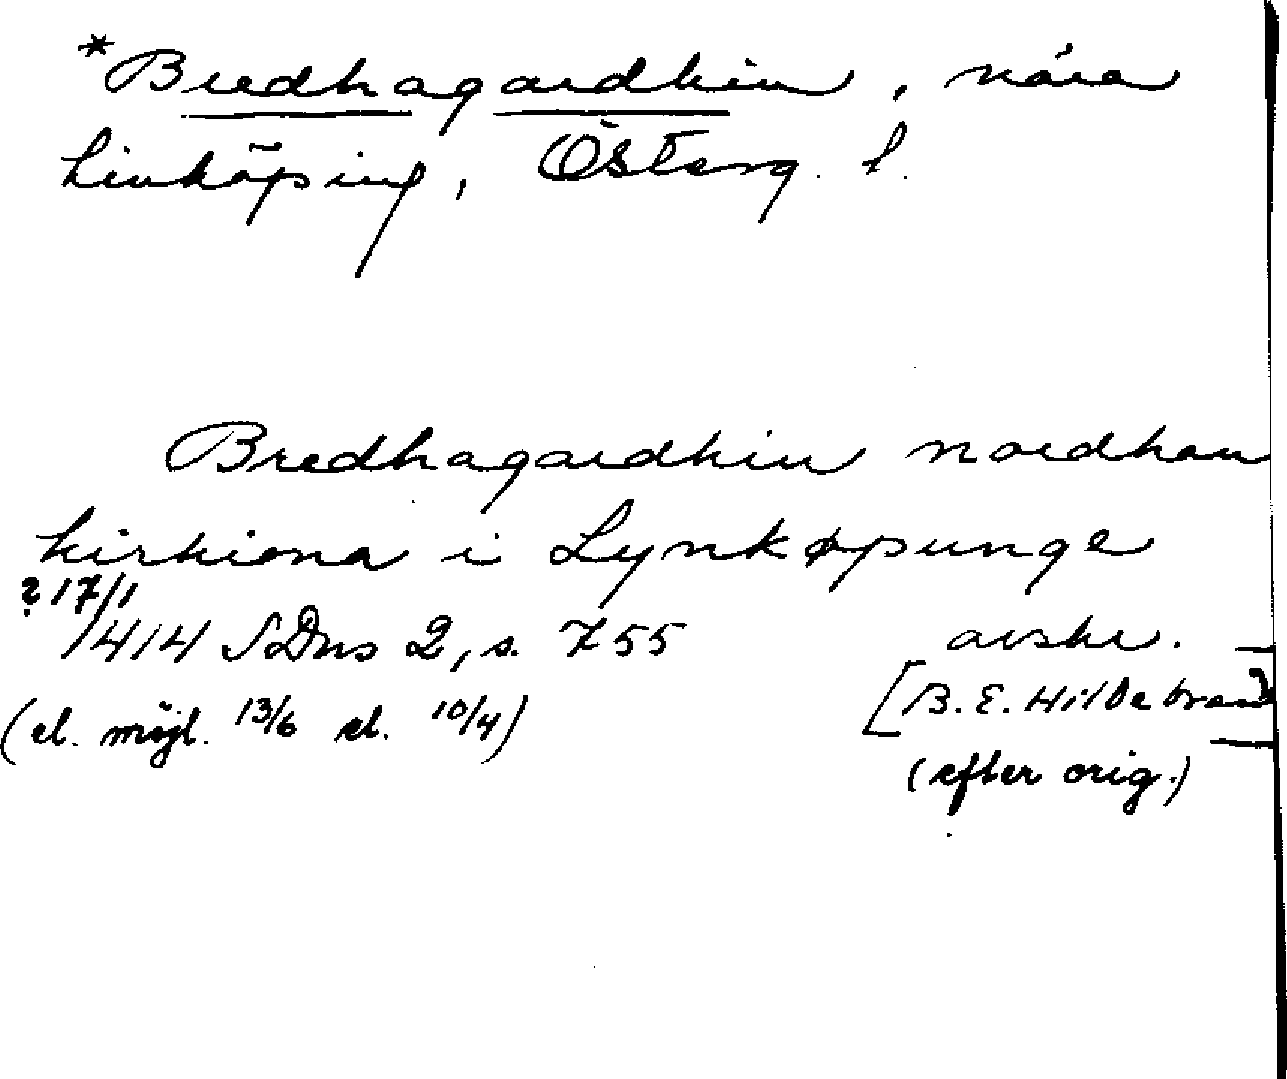 *Bredhagardhin, nära
Linköping, Österg. l.
Bredhagardhin nordhan
kirkiona i Lynkøpunge
? 17/1
1414 SDns 2, s. 755 avskr.
(el. möjl. 13/6 el. 10/4) [B.E. Hildebrand]
(efter orig.)